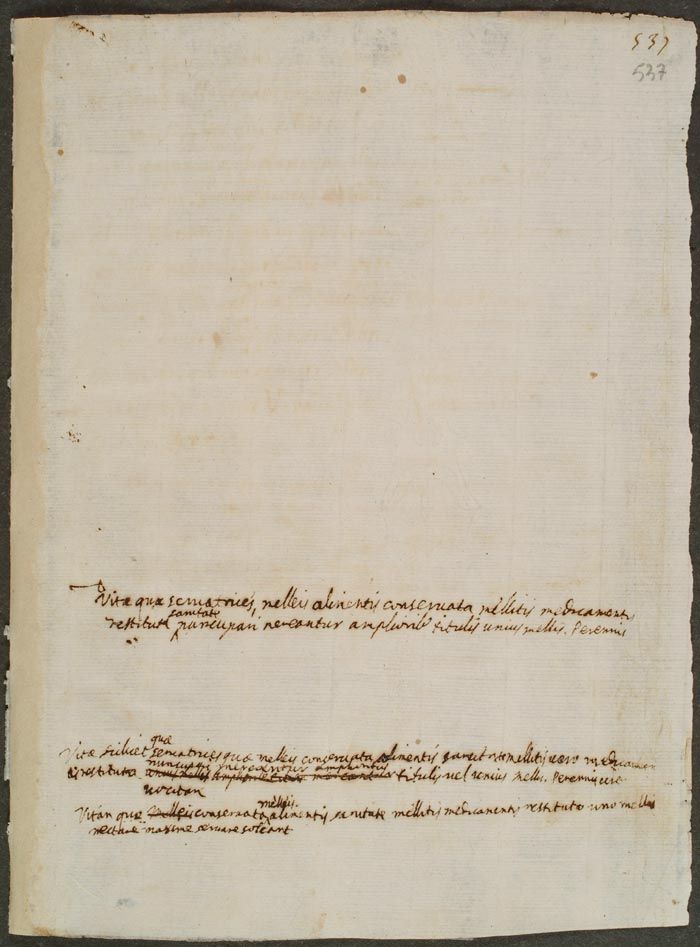 537
537
Vitæ quæ servatrices, melleis alimentis conservata mellitis medicamentis
sanitate
restituta nuncupari mereantur amplioribus titulis unius mellis. Perennis
quæ
Vitæ scilicet servatrices quæ melleis conservata alimentis mellitis vero medicamen
nuncupari mereantur
restituta titulis vel unius mellis. Perennis
melleis
Vitam quæ melleis conservata alimentis, sanitate mellitis medicamentis restituta uno mellis
nectare maxime servare soleant